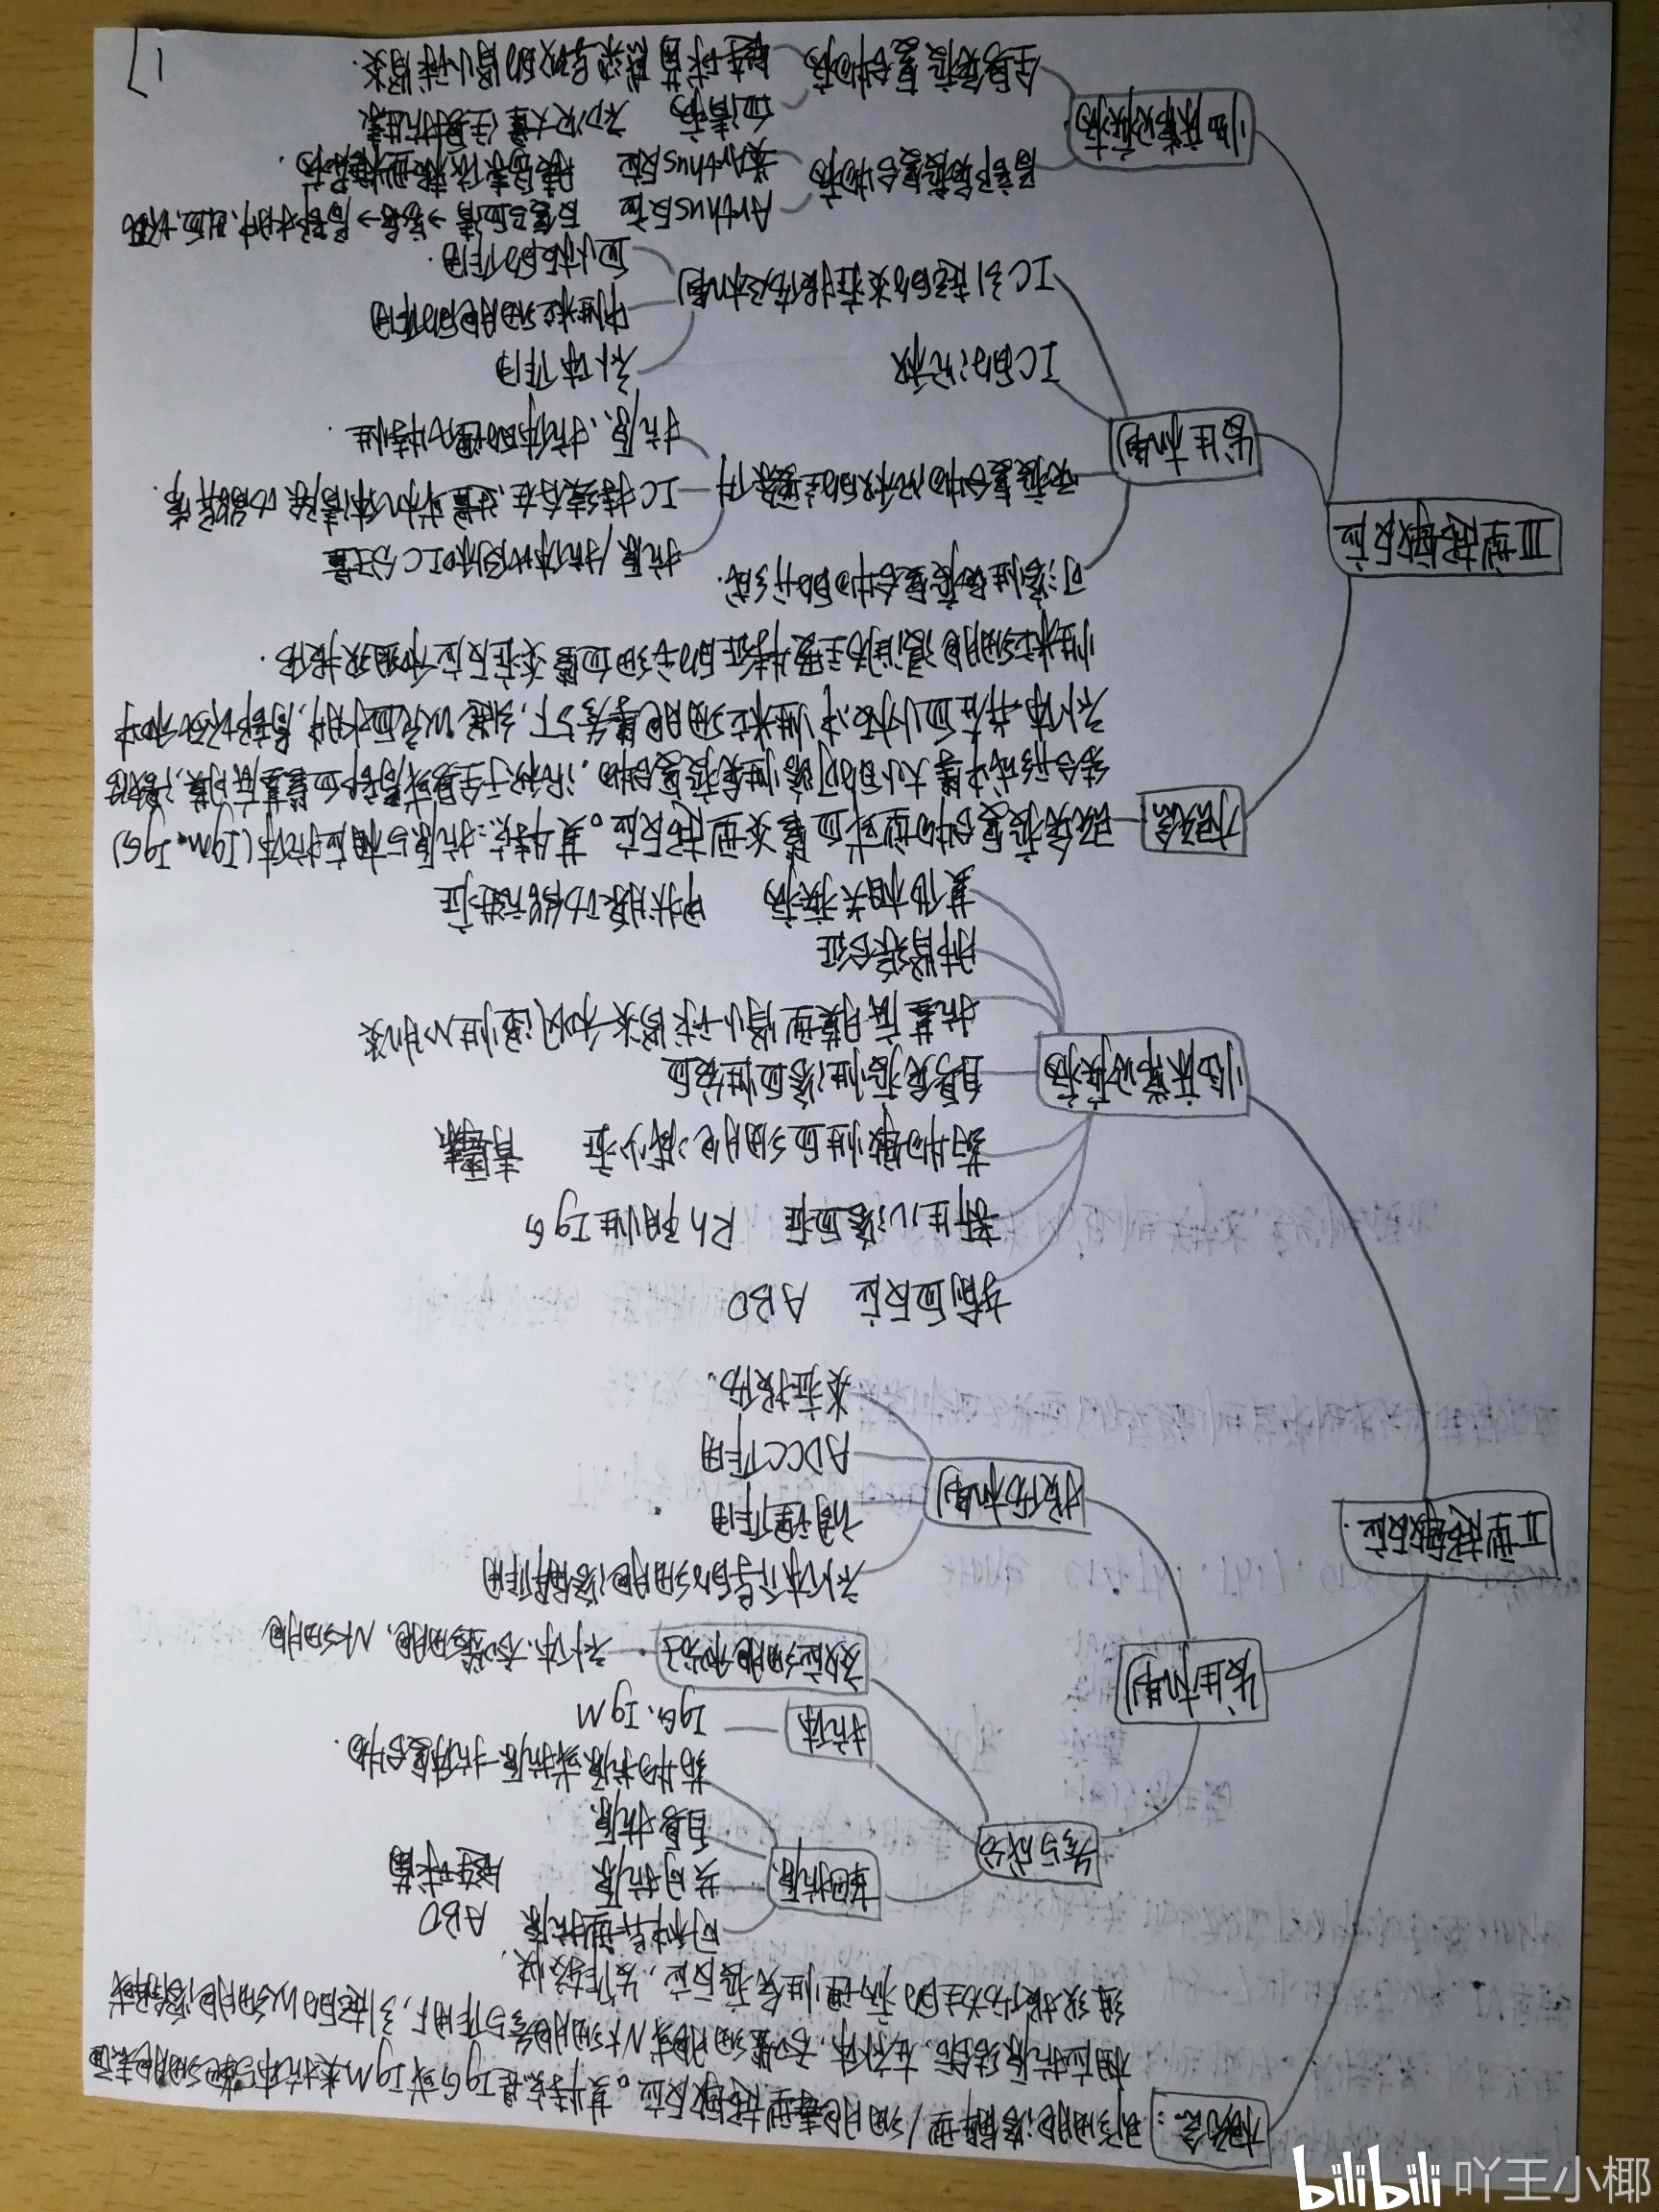 II型超敏反应
概念:
即细胞溶解型/细胞毒型超敏反应。其特点是IgG或IgM类抗体与靶细胞表面
相应抗原结合后,在补体、吞噬细胞或NK细胞参与作用下,引起的以细胞溶解或
组织损伤为主的病理性免疫反应,发作较快
发生机制
参与成分
靶抗原
同种异型抗原 ABO
共同抗原 链球菌
自身抗原
药物抗原或抗原-抗体复合物.
抗体
IgG、IgM
效应细胞和分子
补体、吞噬细胞、NK细胞
损伤机制
补体介导的细胞溶解作用
调理作用
ADCC作用
炎症损伤.
临床常见疾病
输血反应 ABO
新生儿溶血症 Rh阴性IgG
药物过敏性血细胞减少症 青霉素
自身免疫性溶血性贫血
抗基底膜型肾小球肾炎和风湿性心肌炎
肺肾综合征
其他相关疾病 甲状腺功能亢进症
III型超敏反应
概念:
即免疫复合物型或血管炎型超敏反应。其特点:抗原与相应抗体(IgM、IgG)
结合形成中等大小的可溶性免疫复合物,沉积于全身或局部血管基底膜,激活
补体,并在血小板、中性粒细胞等参与下,引起以充血水肿,局部坏死和中
性粒细胞浸润为主要特征的血管炎症反应和组织损伤.
发生机制
可溶性免疫复合物的形成.
免疫复合物沉积的主要条件
抗原/抗体比例和IC分子量
IC持续存在、过量或机体清除功能异常.
抗原、抗体的理化特性.
IC的沉积
IC引起的炎症损伤机制
补体作用
中性粒细胞的作用
血小板的作用.
临床常见疾病
局部免疫复合物病
Arthus反应
类Arthus反应
全身免疫复合物病
血清病 初次大量注射抗毒素
链球菌感染导致的肾小球肾炎.
bilibili 吖王小椰